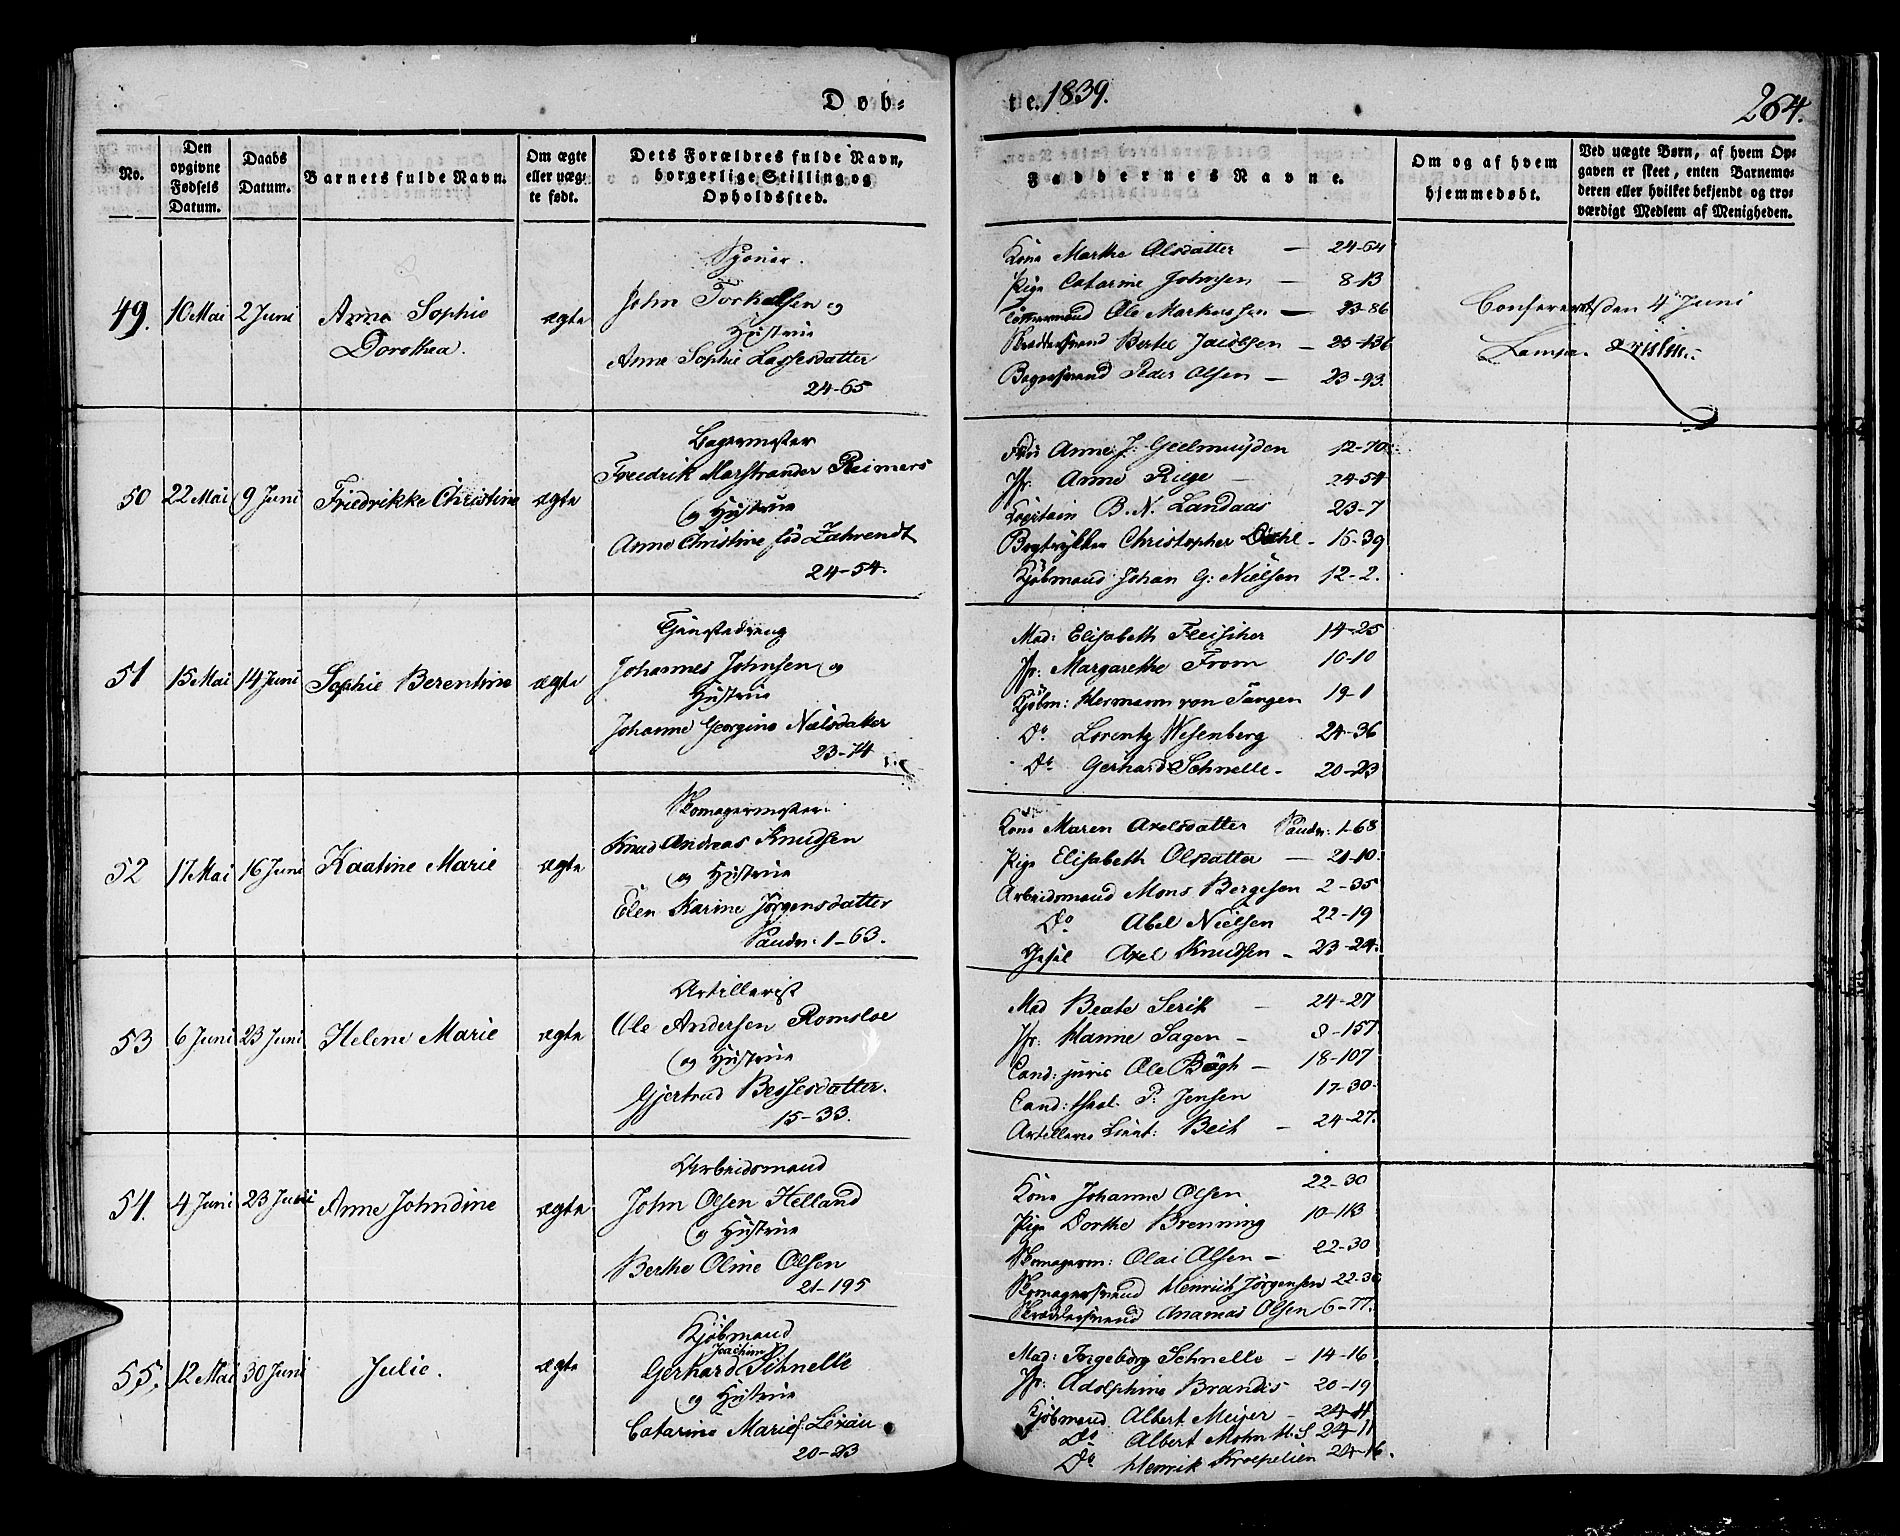 Døb-
te. 1839.
264.
No.
Den opgivne Fødsels Datum.
Daabs Datum.
Barnets fulde Navn.
Om ægte eller uægte født.
Dets Forældres fulde Navn, borgerlige Stilling og Opholdssted.
Faddernes Navne.
Om og af hvem hjemmedøbt.
Ved uægte Børn, af hvem Opgaven er skeet, enten Barnemoderen eller hvilket bekjendt og troværdigt Medlem af Menigheden.
49. 10 Mai 2 Juni Anna Sophie Dorothea. ægte
John Torkelsen og
Hustrue
Anne Sophie Lassesdatter
24-65
Kone Marthe Olsdatter — 24-64
Pige Catarine Johnsen — 8-13
Ole Markussen — 23-86
Skreddersvend Bertel Jacobsen — 23-136
Bagersvend Peder Olsen — 23-93.
Confereret den 4 Juni
50 22 Mai 9 Juni Friedrikke Christine ægte
Bagermester
Fredrik Marstrander Reimers
og Hustrue
Anne Christine fød Zahrendt
24-54.
Anne J. Geelmuyden 12-70
Jfr. Anne Riege — 24-54
Capitain B. N. Landaas 23-7
Bogtrykker Christopher Dahl - 15-39
Kjøbmand Johan G: Nielsen 12-2.
51 15 Mai 14 Juni Sophie Berentine ægte
Tjenestedreng
Johannes Johnsen og
Hustrue
Johanne Georgine Nielsdatter
23-74
Mad: Elisabeth Fleischer 14-25
Jfr: Margarethe From 10-10
Kjøbm: Hermann von Tangen 19-1
Do. Lorentz Wesenberg 24-36
Do. Gerhard Schnelle - 20-23
52 17 Mai 16 Juni Kaatine Marie ægte
Skomagermester
Knud Andreas Knudsen
og Hustrue
Elen Karine Jørgensdatter
Sandv: 1-63.
Kone Maren Axelsdatter Sandv: 1-63
Pige Elisabeth Olsdatter — 21-10.
Arbeidsmand Mons Bergesen 2-35
Do. Abel Nielsen 22-19
Axel Knudsen - 23-24.
53 6 Juni 23 Juni Helene Marie ægte
Artillerist
Ole Andersen Romsloe
og Hustrue
Gjertrud Bessesdatter.
15-33.
Mad Beate Serik — 24-27
Jfr: Hanne Sagen - 8-157
Cand: juris Ole Bøgh — 18-107
Cand: theol. P. Jensen 17-30
Artillerie Lieut: Beih — 24-27.
54. 4 Juni 23 Juni Anne Johndine ægte
Arbeidsmand
John Olsen Helland
og Hustrue
Berthe Oline Olsen
21-195
Kone Johanne Olsen 22-30
Pige Dorthe Brenning 10-113
Skomagerm: Olai Olsen — 22-30
Skomagersvend Henrich Jørgensen 22-30
Skreddersvend Ananias Olsen 6-77.
55. 12 Mai 30 Juni Julie. ægte
Kjøbmand
Joachim
Gerhard Schnelle
og Hustrue
Catarine Marie f: Lexau
20-23
Mad: Ingeborg Schnelle — 14-16
Jfr: Adolphine Brandis 20-19
Kjøbmand Albert Meyer - 24-11
Do. Albert Mohn H: S 24-11
Do. Henrik Kroepelien 24-16.